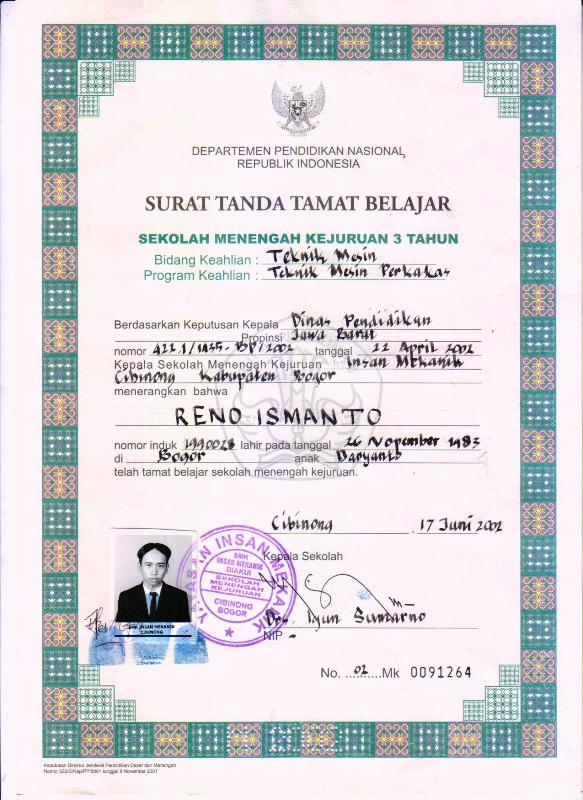 DEPARTEMEN PENDIDIKAN NASIONAL
REPUBLIK INDONESIA
SURAT TANDA TAMAT BELAJAR
SEKOLAH MENENGAH KEJURUAN 3 TAHUN
Bidang Keahlian : Teknik Mesin
Program Keahlian : Teknik Mesin Perkakas
Berdasarkan Keputusan Kepala Dinas Pendidikan
Propinsi Jawa Barat
nomor 422.1/1435-BP/2002 tanggal 22 April 2002
Kepala Sekolah Menengah Kejuruan Insan Mekanik
Cibinong Kabupaten Bogor
menerangkan bahwa
RENO ISMANTO
nomor induk 1990028 lahir pada tanggal 26 Nopember 1983
di Bogor anak Daryanto
telah tamat belajar sekolah menengah kejuruan.
Cibinong, 17 Juni 2002
Kepala Sekolah
SMK
INSAN MEKANIK
DIAKUI
SEKOLAH
MENENGAH
KEJURUAN
CIBINONG
BOGOR
INSAN MEKANIK
SMK INSAN MEKANIK
CIBINONG
Drs. Iyun Sumarno
NIP -
No. ...02...Mk 0091264
Keputusan Direktur Jenderal Pendidikan Dasar dan Menengah
Nomor 533/C/Kep/PP/2001 tanggal 6 November 2001